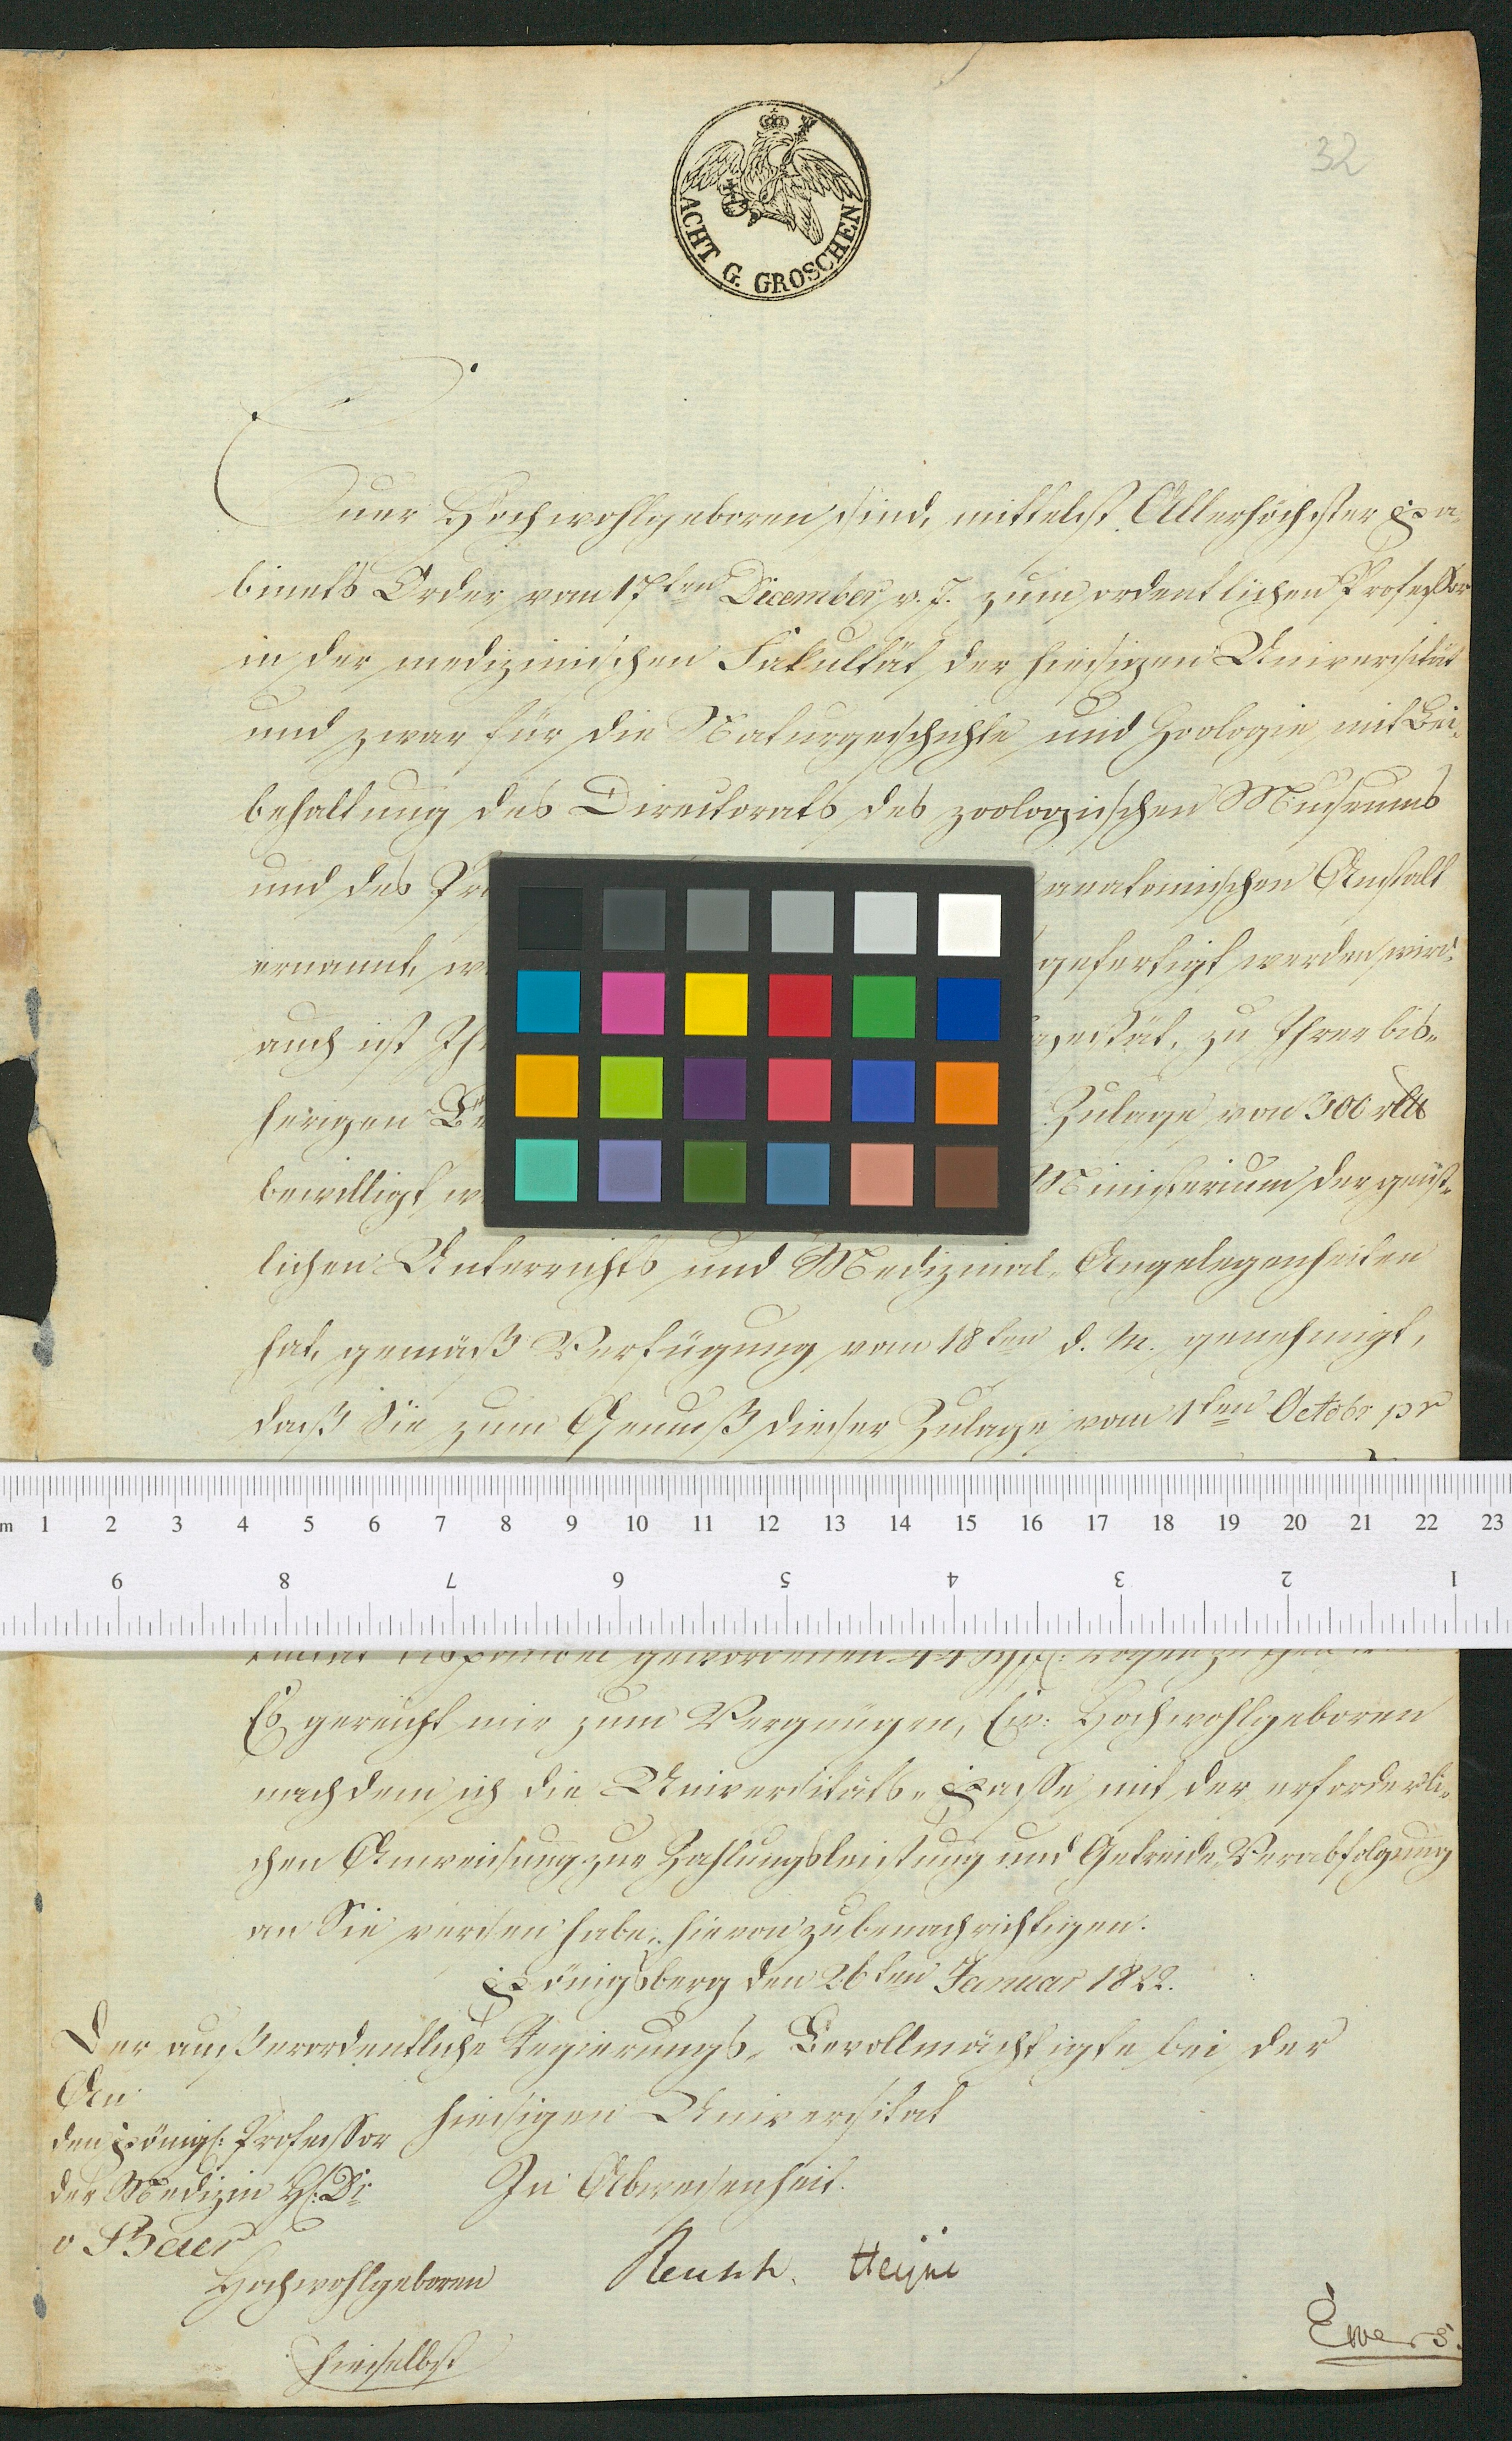 32
ACHT G. GROSCHEN
Euer Hochwohlgeboren sind, mittelst Allerhöchster Ka-
binets Order vom 17ten December v. J. zum ordentlichen Professor
in der medizinischen Fakultät der hiesigen Universität
und zwar für die Naturgeschichte und Zoologie mit Bei-
behaltung des Directorats des zoologischen Museums
und des anatomischen Anstalt
ernannt, gefertigt werden wird.
auch ist zu Ihrer bis-
herigen Zulage von 300 rtlr
bewilligt Ministerium der geist-
lichen Unterrichts und Medizinal-Angelegenheiten
hat, gemäß Verfügung vom 18ten d. M. genehmigt,
daß Sie zum Genuß dieser Zulage vom 1ten Octobr pr
m 1 2 3 4 5 6 7 8 9 10 11 12 13 14 15 16 17 18 19 20 21 22 23
9 8 7 6 5 4 3 2 1
gewordenen 44
Es gereicht mir zum Vergnügen, Ew: Hochwohlgeboren
nachdem ich die Universitäts-Kasse mit der erforderli-
chen Anweisung zur Zahlungsleistung und Getreide Verabfolgung
an Sie versehen habe, hievon zu benachrichtigen.
Königsberg den 26ten Januar 1822.
Der außerordentliche Regierungs-Bevollmächtigte bei der
hiesigen Universitat
An
den Königl: Professor
der Medizin H: Dr
v Baer
Hochwohlgeboren
hieselbst
In Abwesenheit.
Reusch. Heyne
Ewers.